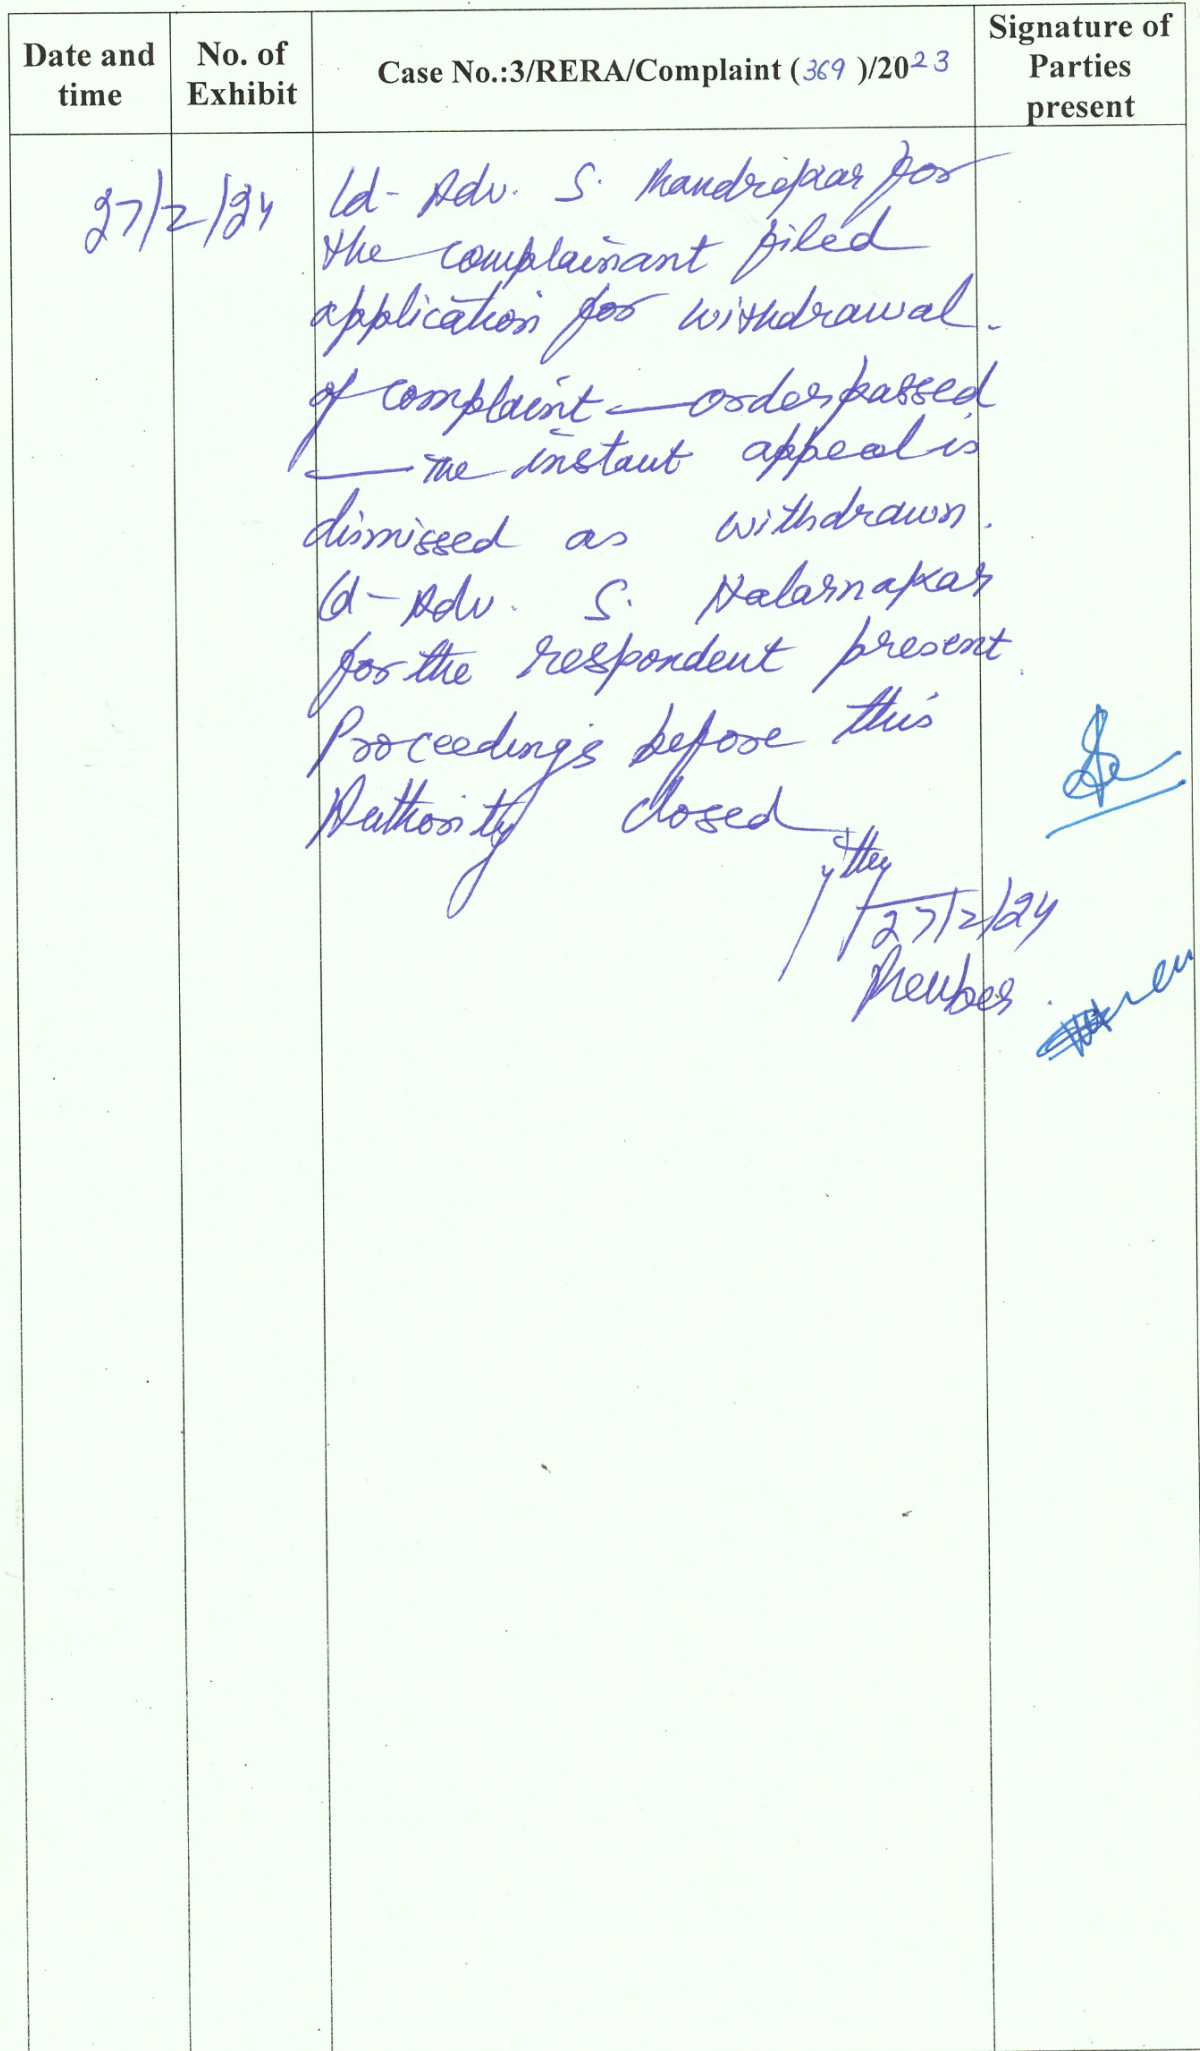 Date and time
No. of Exhibit
Case No.:3/RERA/Complaint (369)/2023
Signature of Parties present
27/2/24
Ld- Adv. S. Mandrekar for
the complainant filed
application for withdrawal.
of complaint — order passed
— The instant appeal is
dismissed as withdrawn.
Ld- Adv. S. Nalarnakar
for the respondent present.
Proceedings before this
Authority closed
27/2/24
Member